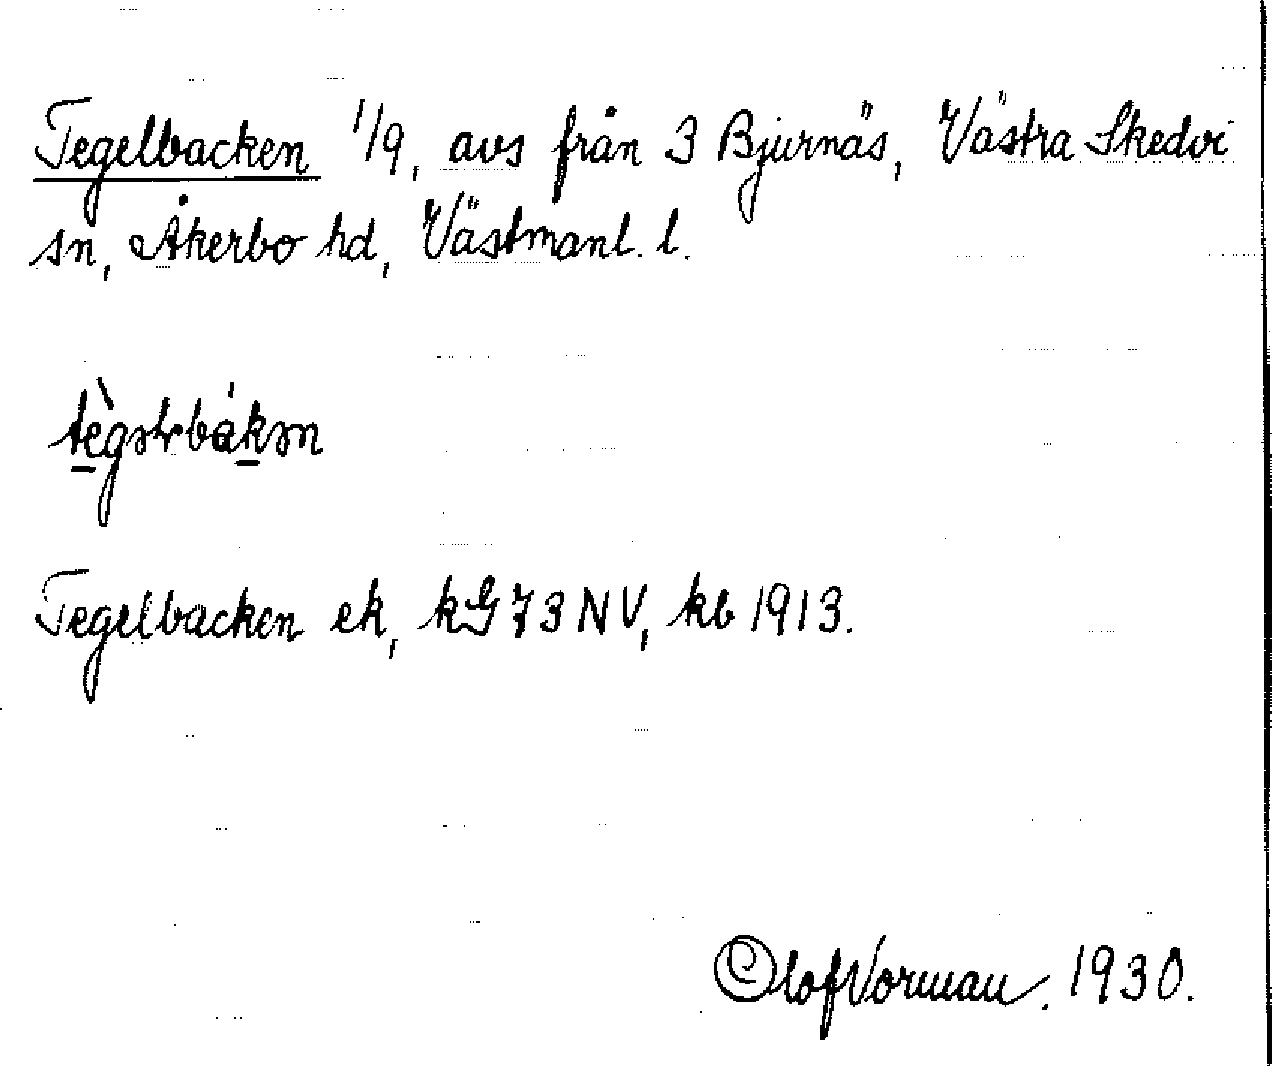 Tegelbacken 1/9, avs från 3 Bjurnäs, Västra Skedvi
sn, Åkerbo hd, Västmanl. l.
Tegelbacken ek, kG 73 NV, kb 1913.
Olof Vorman. 1930.